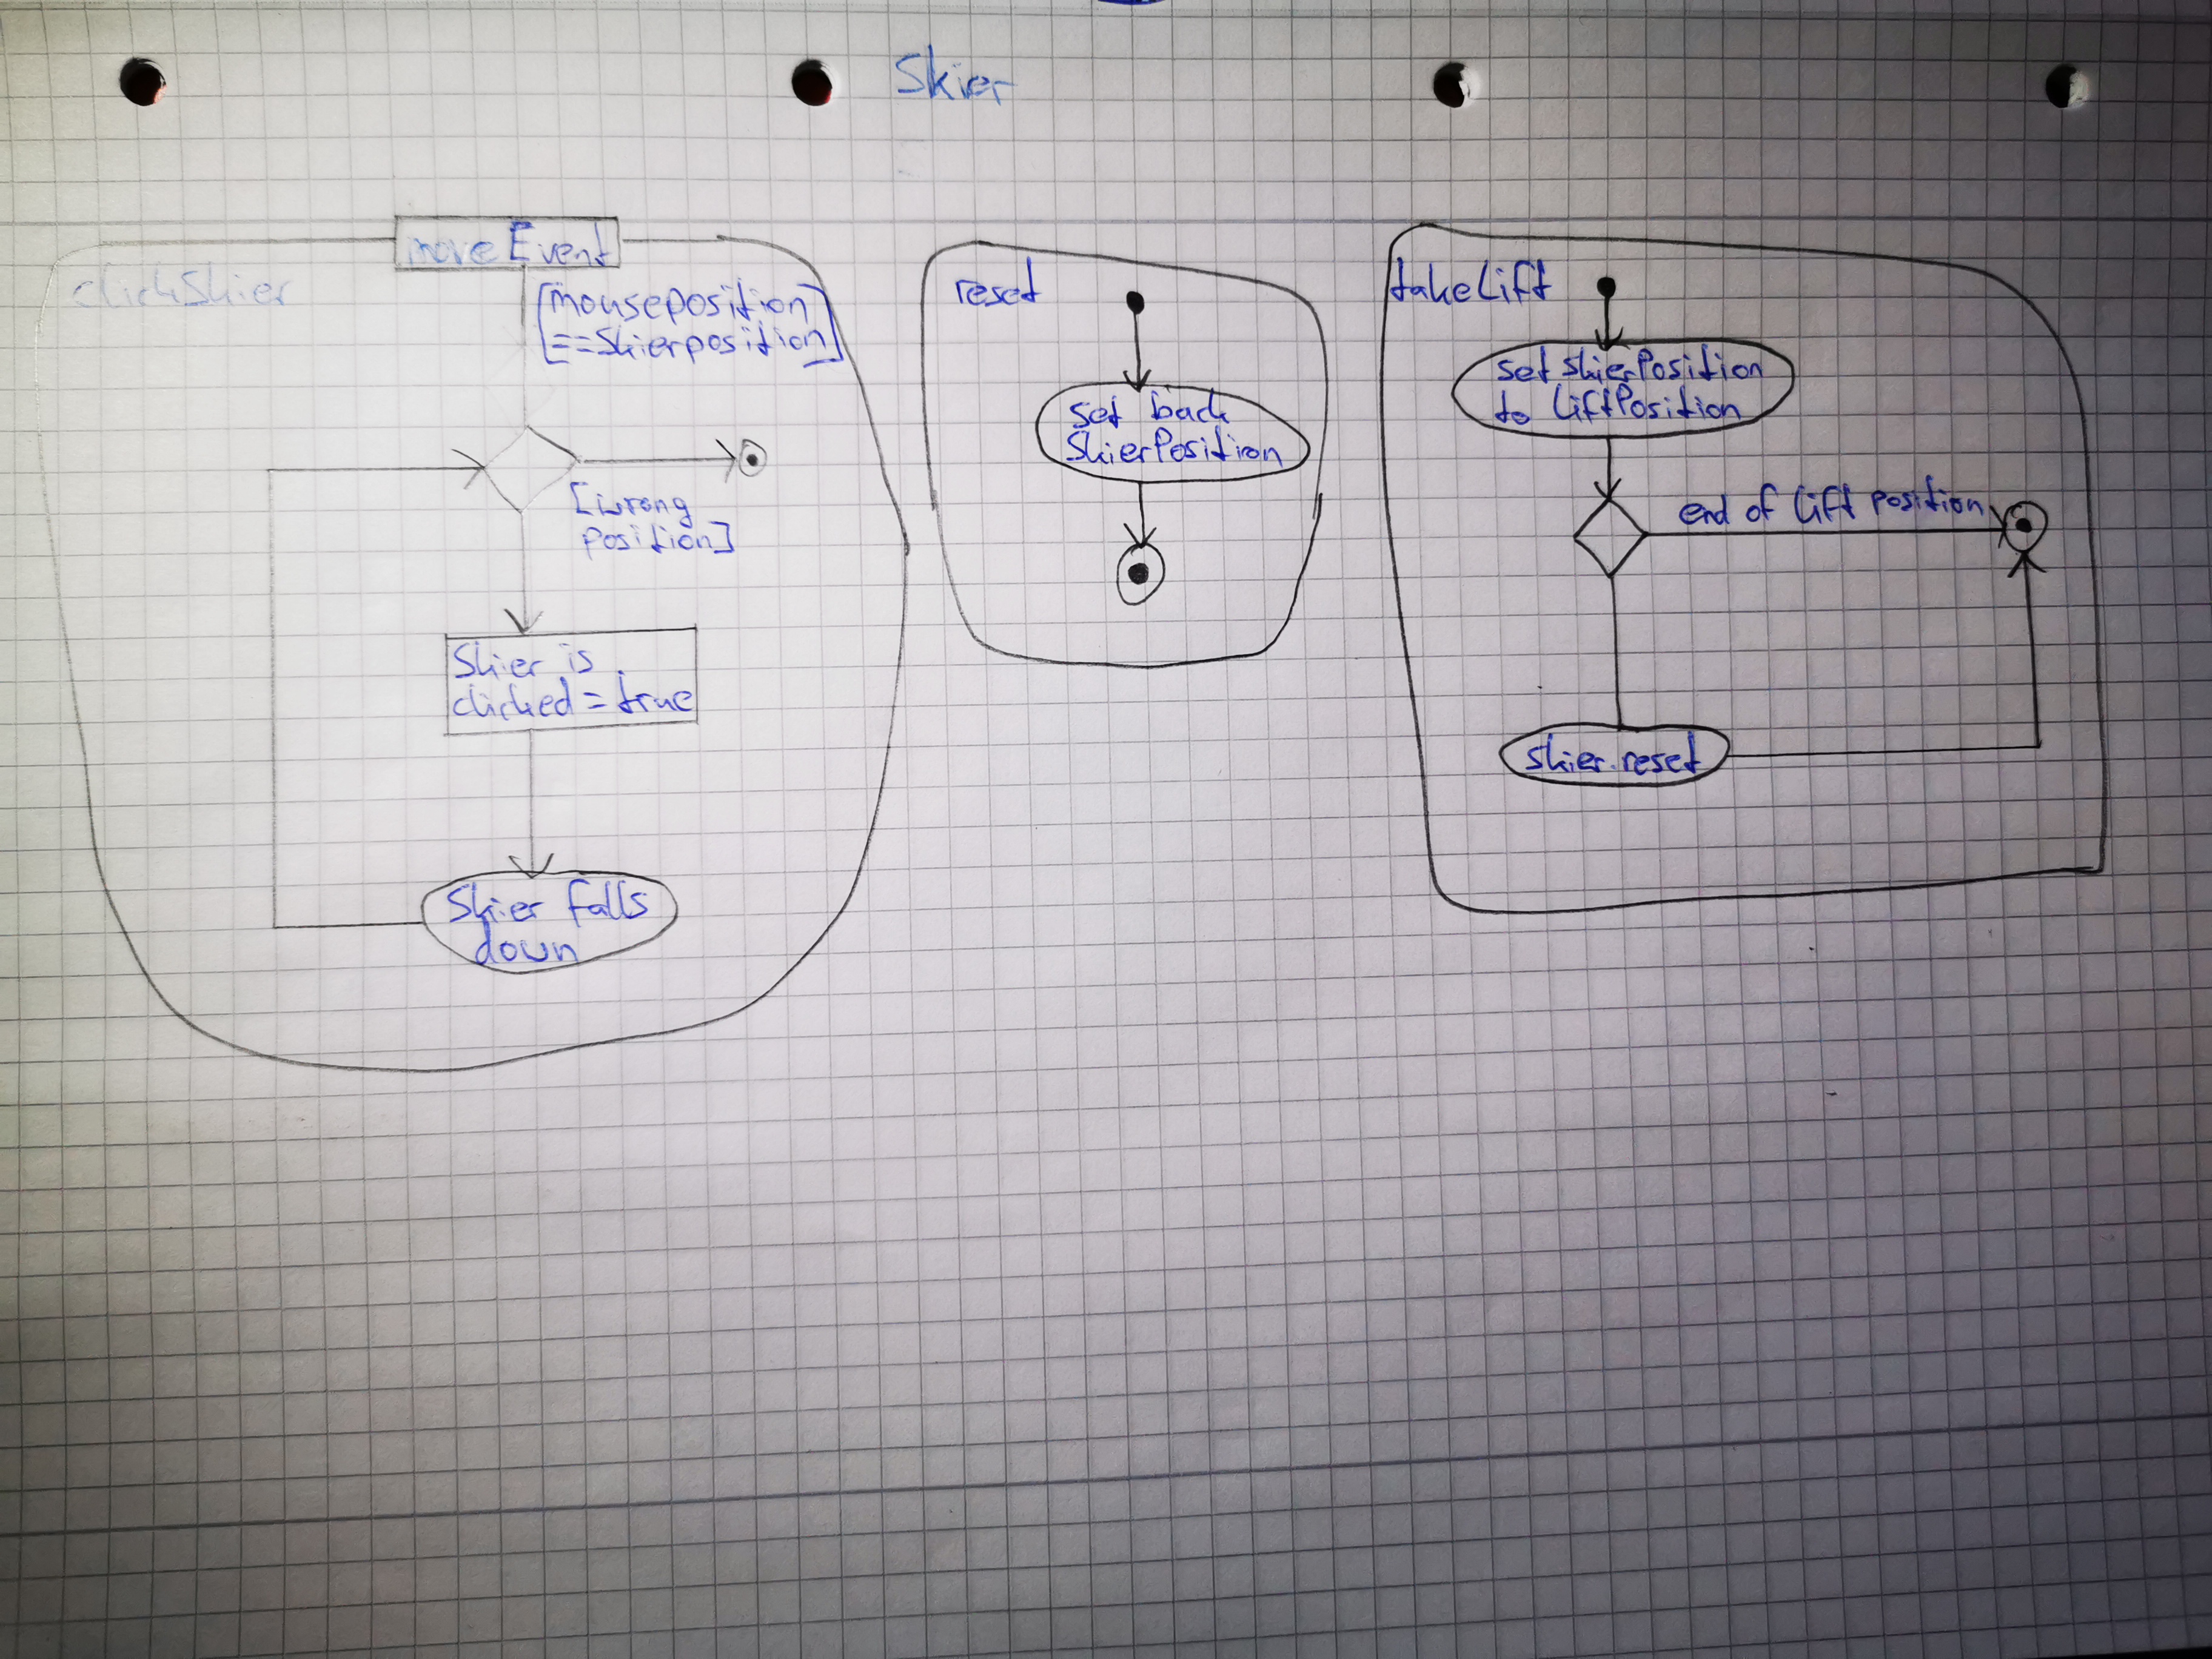 Skier
moveEvent
clickSkier
[mouseposition
==Skierposition]
[wrong
position]
Skier is
clicked = true
Skier falls
down
reset
set back
SkierPosition
takeLift
set skierPosition
to LiftPosition
end of lift position
skier.reset